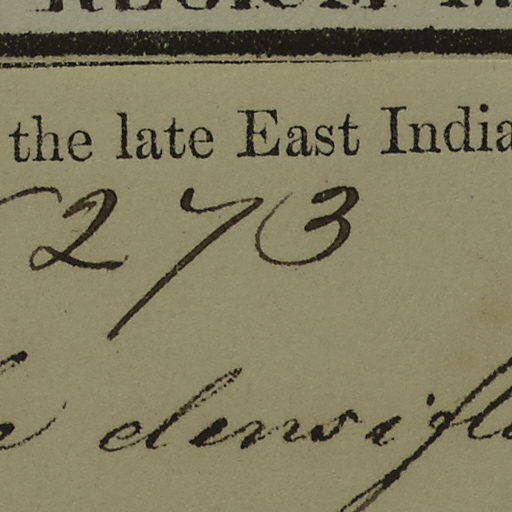 the late East India
273
densifl